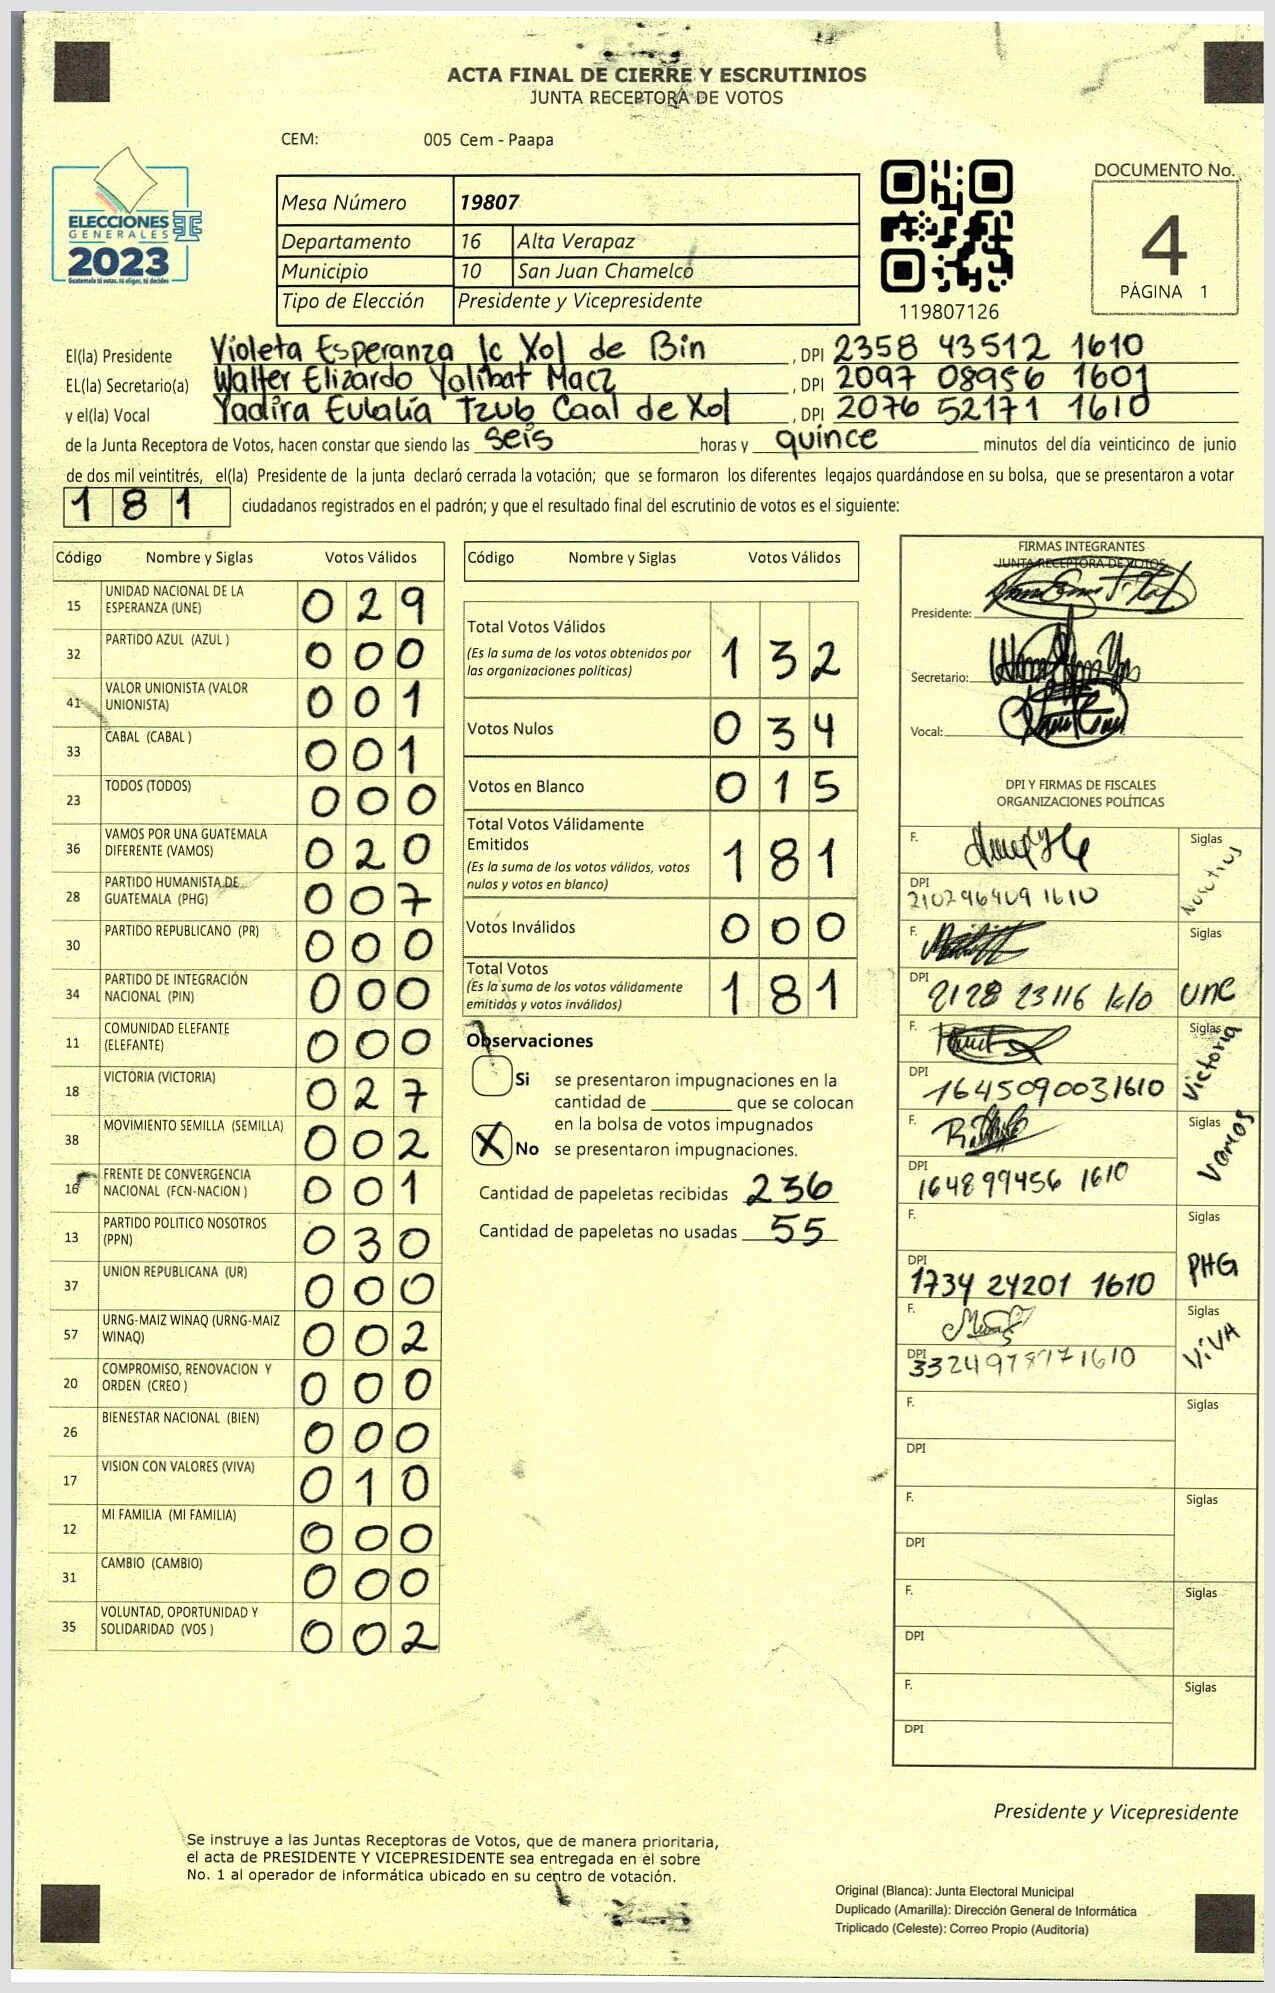 ACTA FINAL DE CIERRE Y ESCRUTINIOS
JUNTA RECEPTORA DE VOTOS
CEM: 005 Cem - Paapa
ELECCIONES
GENERALES
2023
Guatemala tú votas, tú eliges, tú decides
Mesa Número 19807
Departamento 16 Alta Verapaz
Municipio 10 San Juan Chamelco
Tipo de Elección Presidente y Vicepresidente
119807126
DOCUMENTO No.
4
PÁGINA 1
El(la) Presidente Violeta Esperanza Ic Xol de Bin, DPI 2358 43512 1610
EL(la) Secretario(a) Walter Elizardo Yalibat Macz, DPI 2097 08956 1601
y el(la) Vocal Yadira Eulalia Tzub Caal de Xol, DPI 2076 52171 1610
de la Junta Receptora de Votos, hacen constar que siendo las seis horas y quince minutos del día veinticinco de junio
de dos mil veintitrés, el(la) Presidente de la junta declaró cerrada la votación; que se formaron los diferentes legajos quardándose en su bolsa, que se presentaron a votar
181 ciudadanos registrados en el padrón; y que el resultado final del escrutinio de votos es el siguiente:
Código Nombre y Siglas Votos Válidos
15 UNIDAD NACIONAL DE LA ESPERANZA (UNE) 029
32 PARTIDO AZUL (AZUL ) 000
41 VALOR UNIONISTA (VALOR UNIONISTA) 001
33 CABAL (CABAL ) 001
23 TODOS (TODOS) 000
36 VAMOS POR UNA GUATEMALA DIFERENTE (VAMOS) 020
28 PARTIDO HUMANISTA DE GUATEMALA (PHG) 007
30 PARTIDO REPUBLICANO (PR) 000
34 PARTIDO DE INTEGRACIÓN NACIONAL (PIN) 000
11 COMUNIDAD ELEFANTE (ELEFANTE) 000
18 VICTORIA (VICTORIA) 027
38 MOVIMIENTO SEMILLA (SEMILLA) 002
16 FRENTE DE CONVERGENCIA NACIONAL (FCN-NACION ) 001
13 PARTIDO POLITICO NOSOTROS (PPN) 030
37 UNION REPUBLICANA (UR) 000
57 URNG-MAIZ WINAQ (URNG-MAIZ WINAQ) 002
20 COMPROMISO, RENOVACION Y ORDEN (CREO ) 000
26 BIENESTAR NACIONAL (BIEN) 000
17 VISION CON VALORES (VIVA) 010
12 MI FAMILIA (MI FAMILIA) 000
31 CAMBIO (CAMBIO) 000
35 VOLUNTAD, OPORTUNIDAD Y SOLIDARIDAD (VOS ) 002
Código Nombre y Siglas Votos Válidos
Total Votos Válidos 132
(Es la suma de los votos obtenidos por
las organizaciones políticas)
Votos Nulos 034
Votos en Blanco 015
Total Votos Válidamente
Emitidos 181
(Es la suma de los votos válidos, votos
nulos y votos en blanco)
Votos Inválidos 000
Total Votos 181
(Es la suma de los votos válidamente
emitidos y votos inválidos)
Observaciones
Si se presentaron impugnaciones en la
cantidad de ________ que se colocan
en la bolsa de votos impugnados
X No se presentaron impugnaciones.
Cantidad de papeletas recibidas 236
Cantidad de papeletas no usadas 55
FIRMAS INTEGRANTES
JUNTA RECEPTORA DE VOTOS
Presidente:
Secretario:
Vocal:
DPI Y FIRMAS DE FISCALES
ORGANIZACIONES POLÍTICAS
F. Siglas Nosotros
DPI 210296409 1610
F. Siglas UNE
DPI 2128 23116
F. Siglas Victoria
DPI 1645090031610
F. Siglas Vamos
DPI 164899456 1610
F. Siglas PHG
DPI 1734 24201 1610
F. Siglas VIVA
DPI 3324978971610
F. Siglas
DPI
F. Siglas
DPI
F. Siglas
DPI
F. Siglas
DPI
Presidente y Vicepresidente
Se instruye a las Juntas Receptoras de Votos, que de manera prioritaria,
el acta de PRESIDENTE Y VICEPRESIDENTE sea entregada en el sobre
No. 1 al operador de informática ubicado en su centro de votación.
Original (Blanca): Junta Electoral Municipal
Duplicado (Amarilla): Dirección General de Informática
Triplicado (Celeste): Correo Propio (Auditoría)